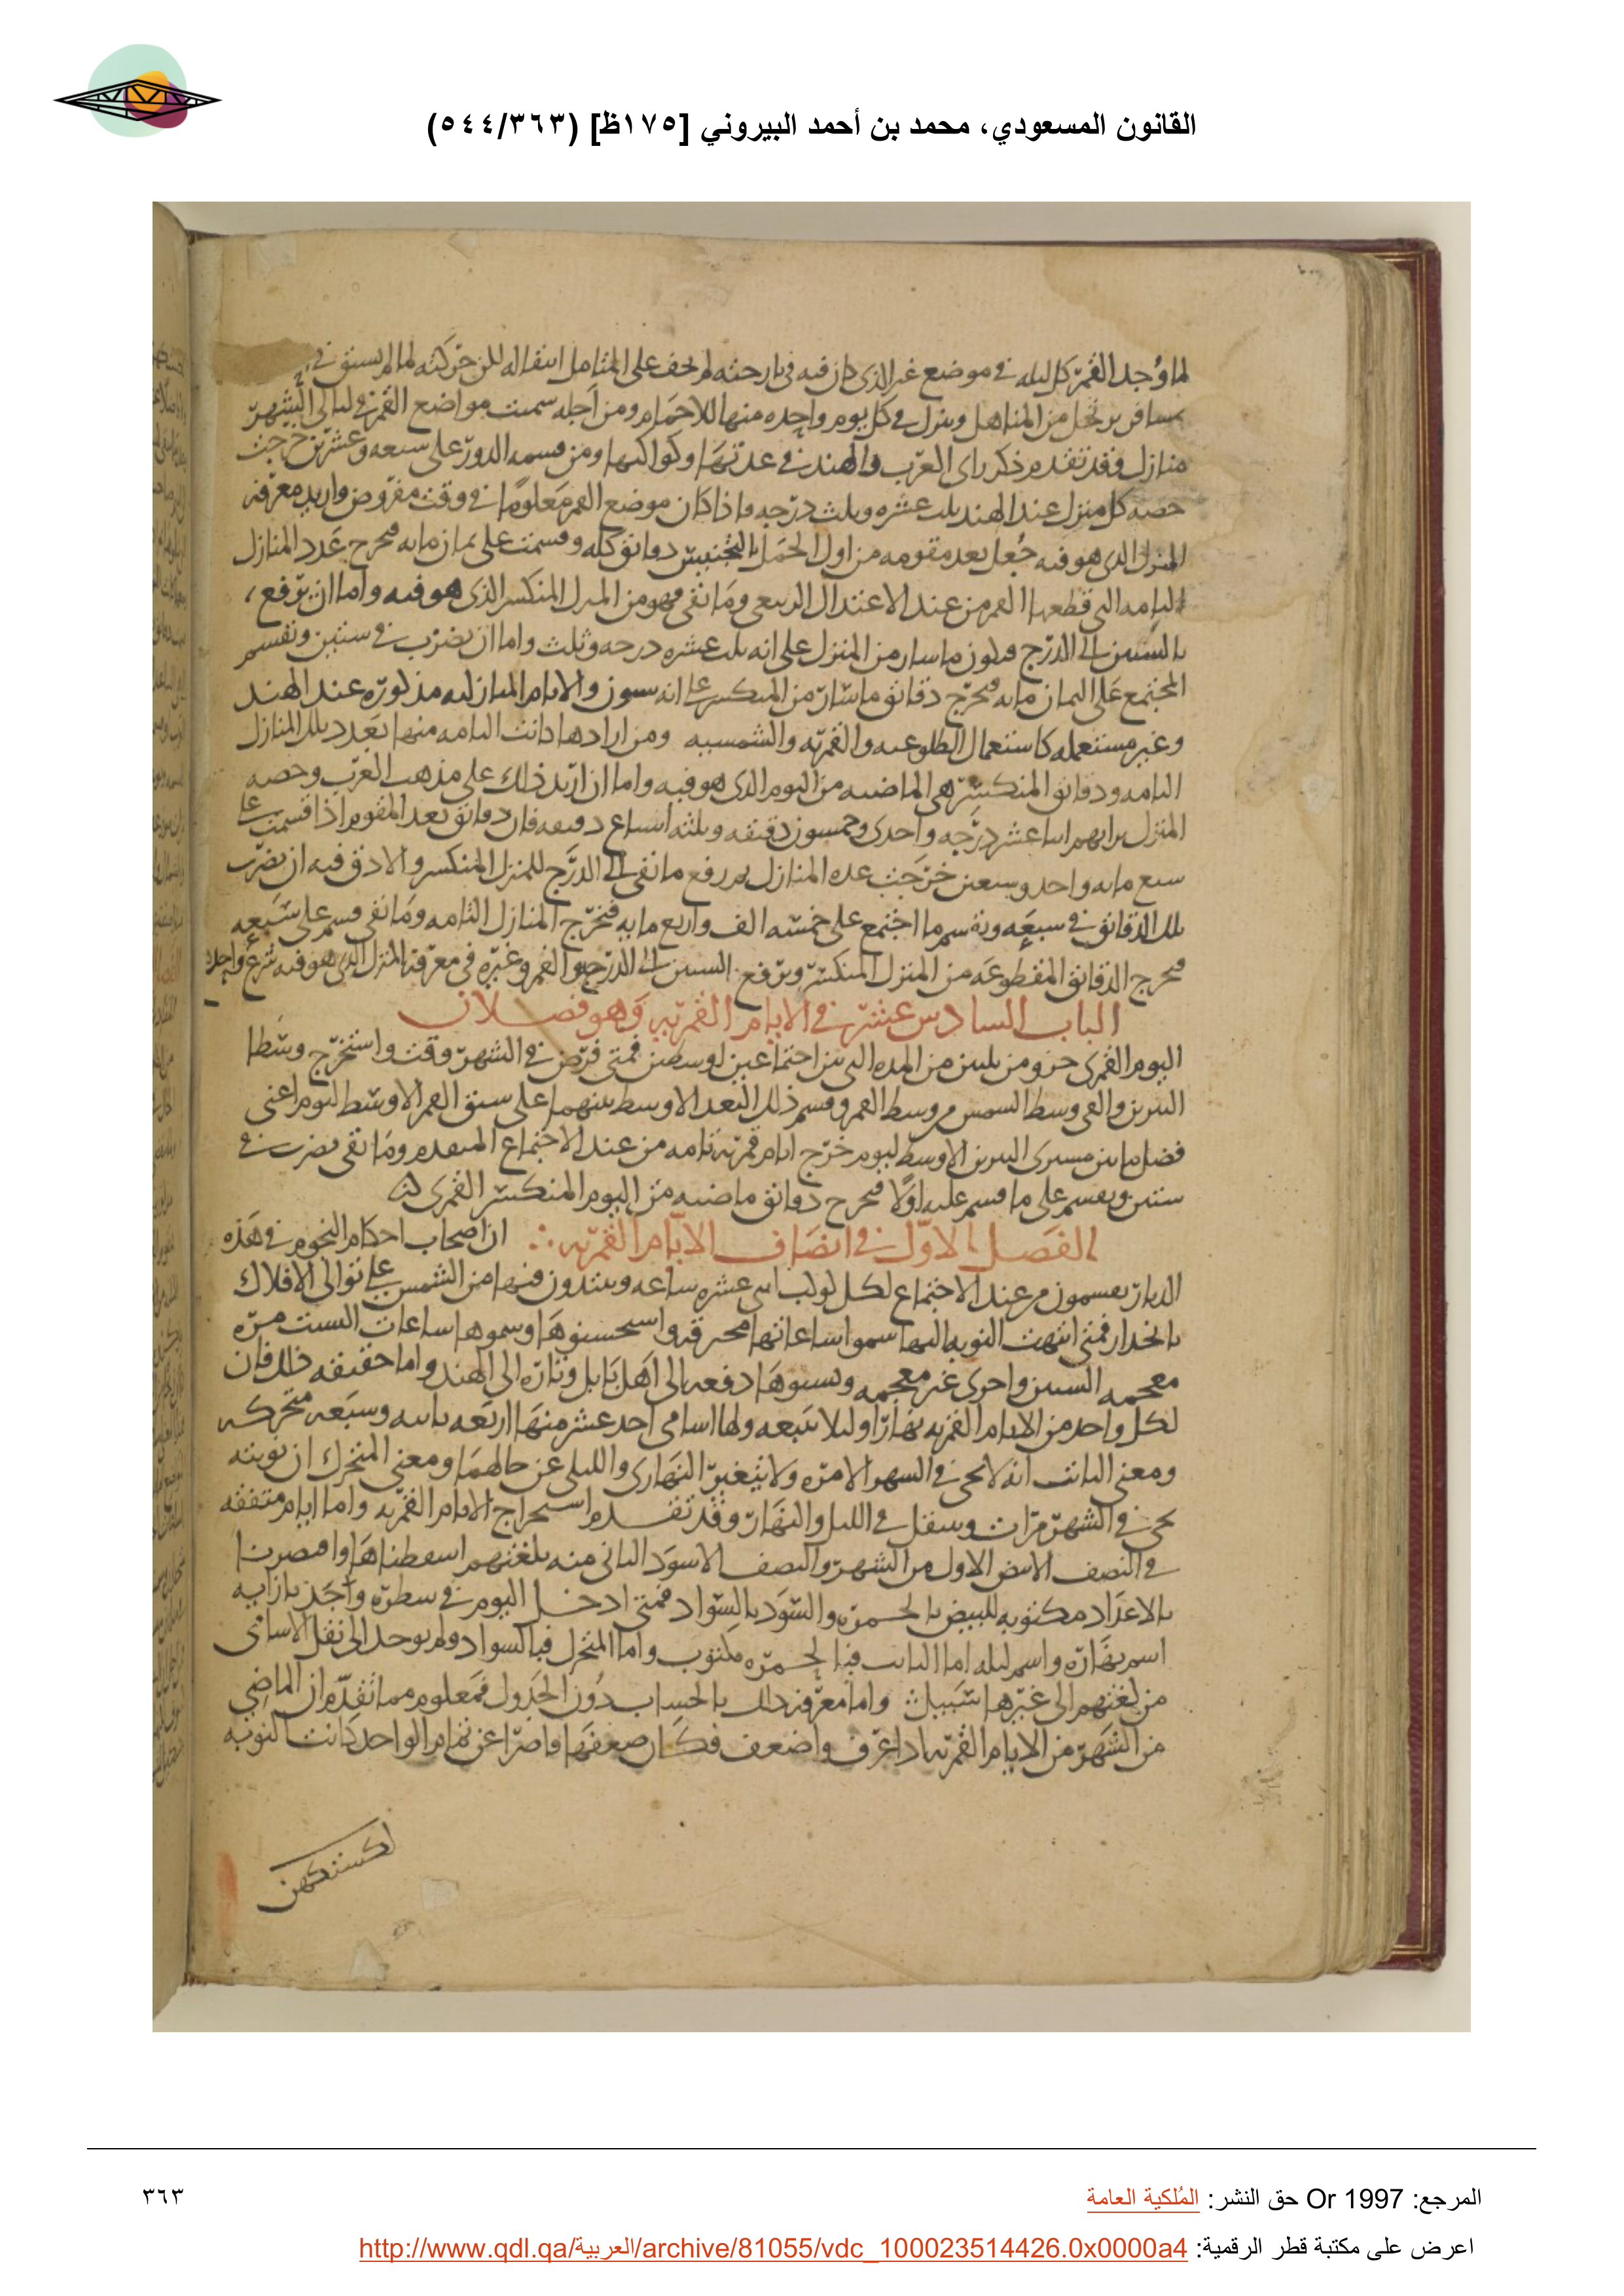 القانون المسعودي، محمد بن أحمد البيروني [١٧٥ظ] (٥٤٤/٣٦٣)
لما وُجد القمر كل ليله في موضع غير الذي كان فيه في بارحته لم يخف على المتامل انتقاله لكن حركته لما لم يستو في
مسافر يرتحل من المناهل وينزل في كل يوم واحده منها للاحمام ومن اجله سميت مواضع القمر في ليالي الشهر
منازل وقد تقدم ذكر راي العرب والهند في عدتها وكواكبها ومن قسمه الدور على سبعه وعشرين خرجت
حصه كل منزل عند الهند ثلث عشره وثلث درجه واذا كان موضع القمر معلومًا في وقت مفروض واريد معرفه
المنزل الذي هو فيه جُعل بعد مقومه من اول الحمل بالتجنيس دقائق كله وقسمت على ثمان مايه فيخرج عدد المنازل
التامه التي قطعها القمر من عند الاعتدال الربيعي وما بقي فهو من المنزل المنكسر الذي هو فيه واما ان ترفع
بالستين الى الدرج فيكون ما سار من المنزل على انه ثلث عشره درجه وثلث واما ان يضرب في ستين ونقسم
المجتمع على الثمان مايه فيخرج دقائق ما سار من المنكسر على انه ستون والايام المنازليه مذكوره عند الهند
وغير مستعمله كاستعمال الطلوعيه والقمريه والشمسيه ومن ارادها كانت التامه منها بعدد تلك المنازل
التامه ودقائق المنكسر هي الماضيه من اليوم الذي هو فيه واما ان اريد ذلك على مذهب العرب وحصه
المنزل برايهم اثنا عشر درجه واحدى وخمسون دقيقه وثلثه اسباع دقيقه فان دقائق بعد المقوم اذا قسمت على
سبع مايه واحد وسبعين خرجت عده المنازل ثم رفع ما بقي الى الدرج للمنزل المنكسر والادق فيه ان يضرب
تلك الدقائق في سبعه ونقسم ما اجتمع على خمسه الف واربع مايه فتخرج المنازل التامه وما بقي قسم على سبعه
فيخرج الدقائق المقطوعه من المنزل المنكسر وترفع بالستين الى الدرج والقمر وغيره في معرفه المنزل الذي هو فيه شرع واحد
الباب السادس عشر في الايام القمريه وهو فصلان
اليوم القمري جزو من ثلثين من المده التي بين اجتماعين اوسطين فمتى فرض في الشهر وقت واستخرج وسطا
النيرين والقي وسط الشمس من وسط القمر وقسم ذلك البعد الاوسط بينهما على سبق القمر الاوسط ليوم اعني
فضل ما بين مسيري النيرين الاوسط ليوم خرج ايام قمريه تامه من عند الاجتماع المتقدم وما بقي يضرب في
ستين ويقسم على ما قسم عليه اولًا فيخرج دقائق ماضيه من اليوم المنكسر القمري
الفصل الاول في انصاف الايام القمريه ∴ ان اصحاب احكام النجوم في هذه
الديار يقسمون من عند الاجتماع لكل كوكب اثني عشره ساعه ويبتدون فيها من الشمس على توالي الافلاك
بانحدار فمتى انتهت النوبه اليها سموا ساعاتها محترقه واستحسنوها وسموها ساعات البست مره
معجمه السين واخرى غير معجمه ونسبوها دفعه الى اهل بابل وتاره الى الهند واما حقيقه ذلك فان
لكل واحد من الايام القمريه نهارًا وليلا تتبعه ولها اسامي احد عشر منها اربعه ثابته وسبعه متحركه
ومعنى الثابت انه لا يجي في الشهر الا مره ولا يتغير النهاري والليلي عن حالهما ومعنى المتحرك ان نوبته
يجي في الشهر مرات وينتقل في الليل والنهار وقد تقدم استخراج الايام القمريه واما ايام متفقه
في النصف الابيض الاول من الشهر والنصف الاسود الثاني منه بلغتهم اسقطناها واقتصرنا
بالاعداد مكتوبه للبيض بالحمره والسود بالسواد فمتى ادخل اليوم في سطره واخذ بازايه
اسم نهاره واسم ليله اما الثابت فبالحمره مكتوب واما المتحرك فبالسواد ولم يوجد الى نقل الاسامي
من لغتهم الى غيرها سبيل واما معرفه ذلك بالحساب دون الجدول فمعلوم مما تقدم ان الماضي
من الشهر من الايام القمريه اذا عرف واضعف فكان ضعفها قاصرًا عن تمام الواحد كانت النوبه
لكستكهن
المرجع: Or 1997 حق النشر: المُلكية العامة
٣٦٣
اعرض على مكتبة قطر الرقمية: http://www.qdl.qa/العربية/archive/81055/vdc_100023514426.0x0000a4